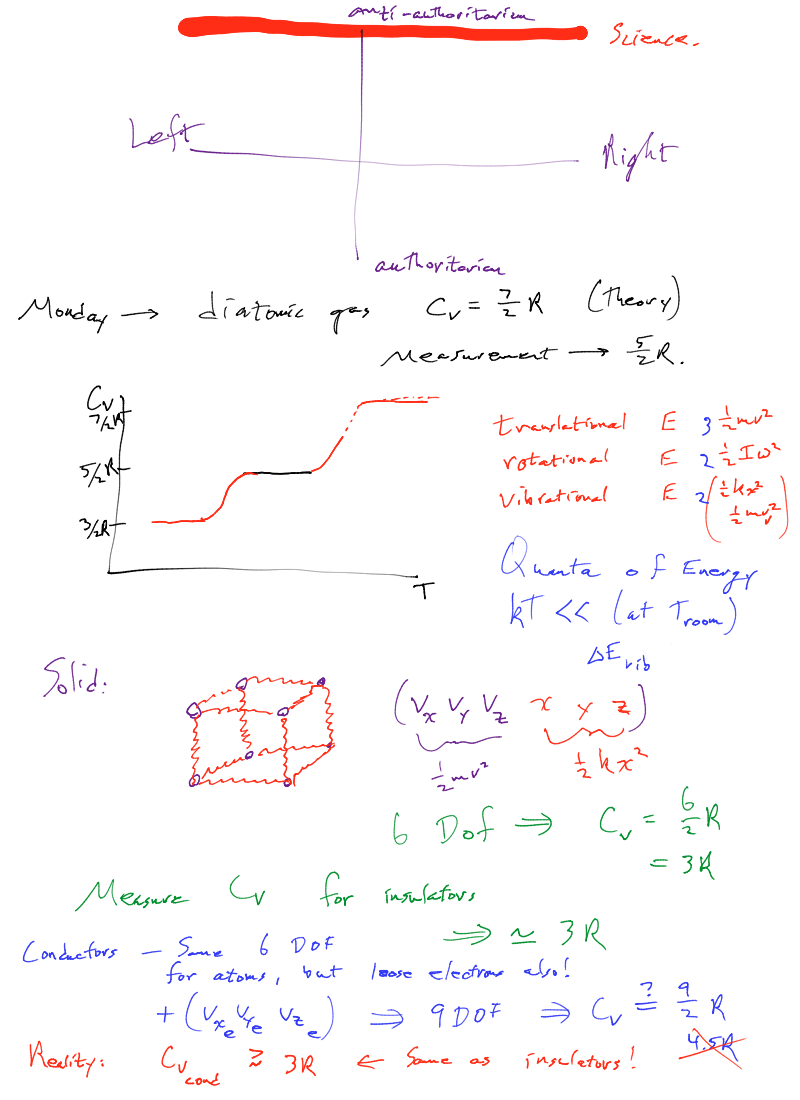 anti-authoritarian
Science.
Left
Right
authoritarian
Monday → diatomic gas Cv = 7/2 R (Theory)
Measurement → 5/2 R.
Cv
7/2R
5/2R
3/2R
T
translational E 3 1/2 mv²
rotational E 2 1/2 Iω²
vibrational E 2 (1/2 kx²
1/2 mv²)
Quanta of Energy
kT << (at Troom)
ΔEvib
Solid:
(Vx Vy Vz x y z)
1/2 mv² 1/2 kx²
6 Dof ⇒ Cv = 6/2 R
= 3R
Measure Cv for insulators
⇒ ≃ 3R
Conductors — Same 6 DOF
for atoms, but loose electrons also!
+ (Vxe Vye Vze) ⇒ 9 DOF ⇒ Cv ?= 9/2 R
4.5R
Reality: Cv cond ≈ 3R ← Same as insulators!